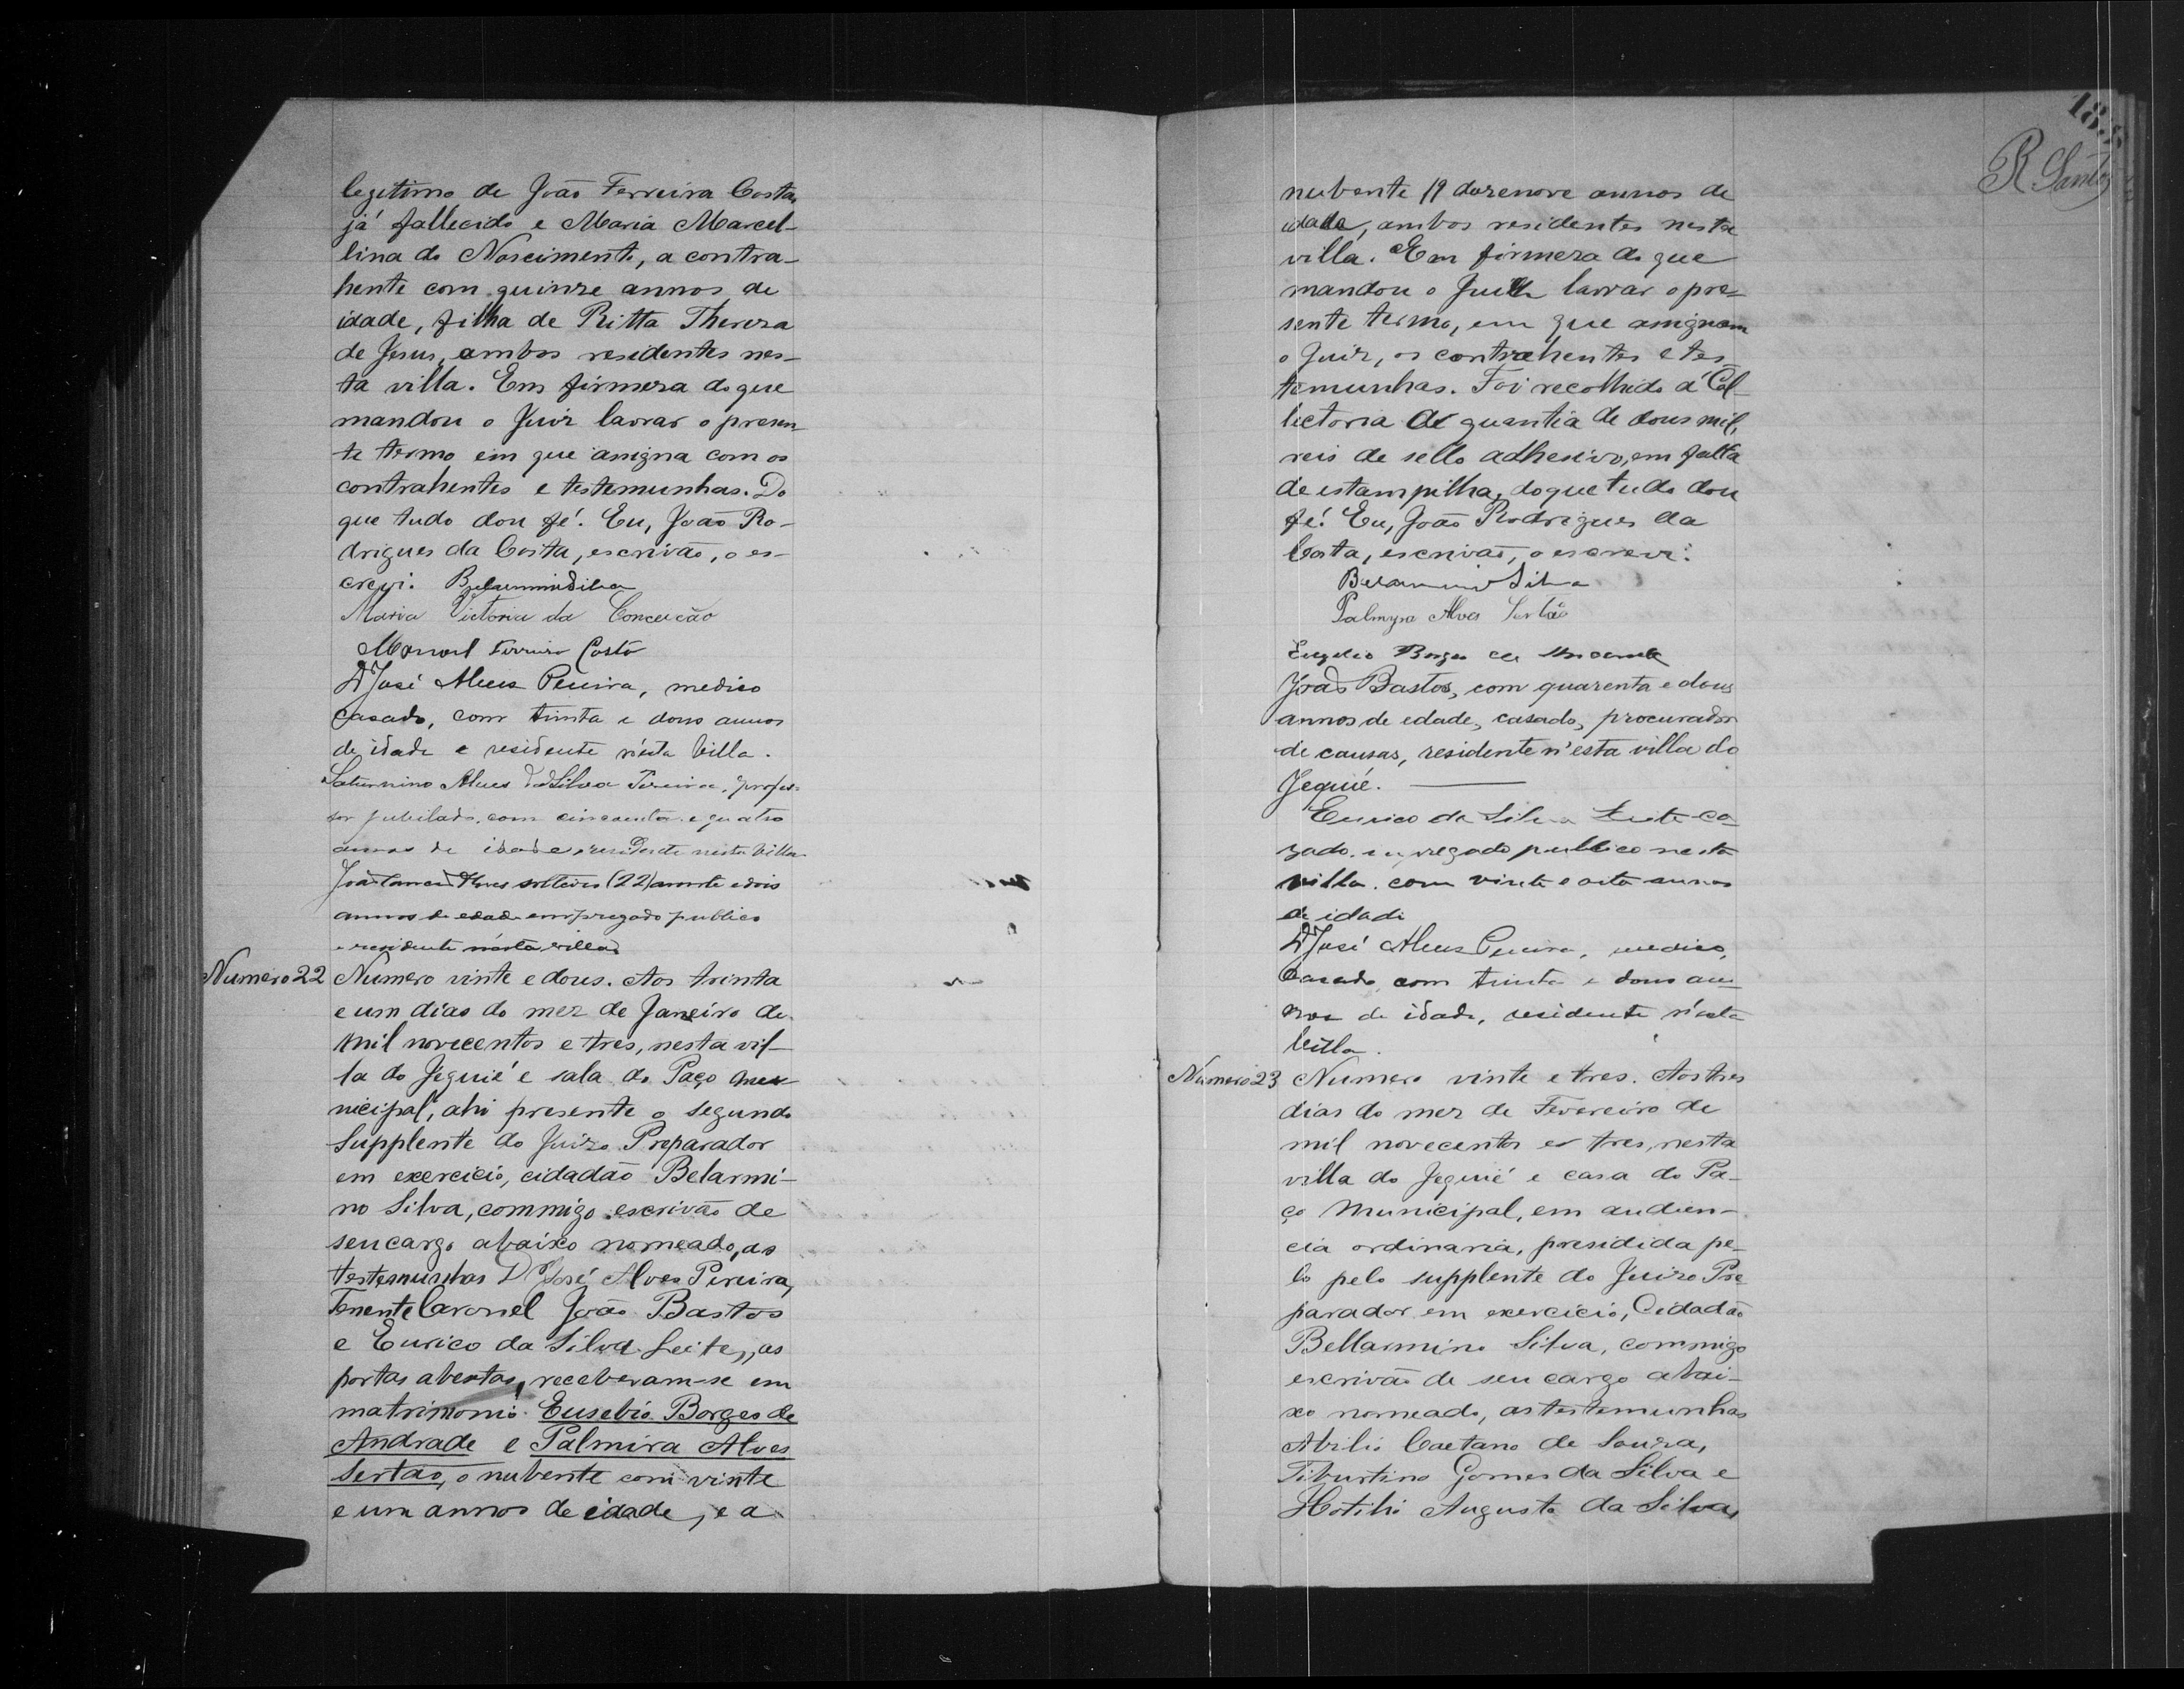 legitimo de João Ferreira Costa,
já fallecido e Maria Marcel-
lina do Nascimento, a contra-
hente com quinze annos de
idade, filha de Ritta Thereza
de Jesus, ambos residentes nes-
ta villa. Em firmeza do que
mandou o Juiz lavrar o presen-
te termo em que assigna com os
contrahentes e testemunhas. Do
que tudo dou fé. Eu, João Ro-
drigues da Costa, escrivão, o es-
crevi. Belarmino Silva
Maria Victoria da Conceição
Manoel Ferreira Costa
Dr José Alves Pereira, medico
casado, com trinta e dous annos
de idade e residente n'esta Villa.
Saturnino Alves da Silva Pereira, profes-
sor jubilado, com cincoenta e quatro
annos de idade residente nesta Villa.
João solteiro (22) vinte e dois
annos de edade empregado publico
e residente n'esta villa
Numero 22 Numero vinte e dous. Aos trinta
e um dias do mez de Janeiro de
mil novecentos e tres, nesta vil-
la do Jequié e sala do Paço mu-
nicipal, ahi presente o segundo
supplente do Juizo Preparador
em exercicio, cidadão Belarmi-
no Silva, commigo escrivão de
seu cargo abaixo nomeado, as
testemunhas Dr José Alves Pereira,
Tenente Coronel João Bastos
e Eurico da Silva Leite, as
portas abertas, receberam-se em
matrimonio Eusebio Borges de
Andrade e Palmira Alves
Sertão, o nubente com vinte
e um annos de idade, e a
183
R Santos
nubente 19 dezenove annos de
idade, ambos residentes nesta
villa. Em firmeza do que
mandou o Juiz lavrar o pre-
sente termo, em que assignam
o Juiz, os contrahentes e tes-
temunhas. Foi recolhido á Col-
lectoria a quantia de dous mil
reis de sello adhesivo, em falta
de estampilha, do que tudo dou
fé. Eu, João Rodrigues da
Costa, escrivão, o escrevi.
Belarmino Silva
Palmyra Alves Sertão
Borges de Andrade
João Bastos, com quarenta e dous
annos de edade, casado, procurador
de causas, residente n'esta villa do
Jequié.
Eurico da Silva Leite ca-
zado, empregado publico nesta
villa, com vinte e oito annos
de idade
Dr José Alves Pereira, medico,
Casado, com trinta e dous an-
nos de idade, residente n'esta
Villa.
Numero 23 Numero vinte e tres. Aos tres
dias do mez de Fevereiro de
mil novecentos e tres, nesta
villa do Jequié e casa do Pa-
ço Municipal, em audien-
cia ordinaria, presidida pe-
lo pelo supplente do Juizo Pre-
parador em exercicio, Cidadão
Bellarmino Silva, commigo
escrivão de seu cargo abai-
xo nomeado, as testemunhas
Abilio Caetano de Souza,
Tiburtino Gomes da Silva e
Augusto da Silva,